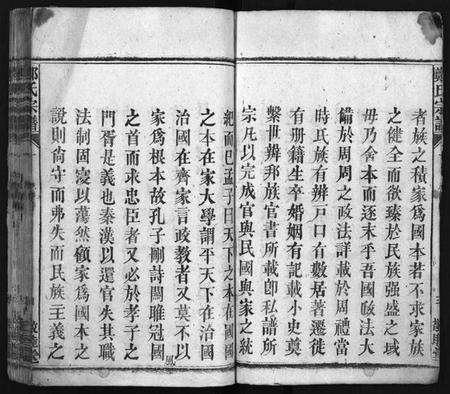 鄭氏宗譜
三
者族之積家爲國本若不求家族
之健全而欲臻於民族强盛之域
毋乃舍本而逐末乎吾國政法大
備於周周之政法詳載於周禮當
時氏族有辨戶口有數居著遷徙
有册籍生卒婚姻有記載小史奠
繫世辨邦族官書所載卽私譜所
宗凡以完成官與民國與家之統
紀而已孟子曰天下之本在國國
之本在家大學謂平天下在治國
治國在齊家言政教者又莫不以
家爲根本故孔子刪詩關雎冠國風
之首而求忠臣者又必於孝子之
門胥是義也秦漢以還官失其職
法制固寖以蕩然顧家爲國本之
說則尙守而弗失而民族主義之
鄭氏宗譜